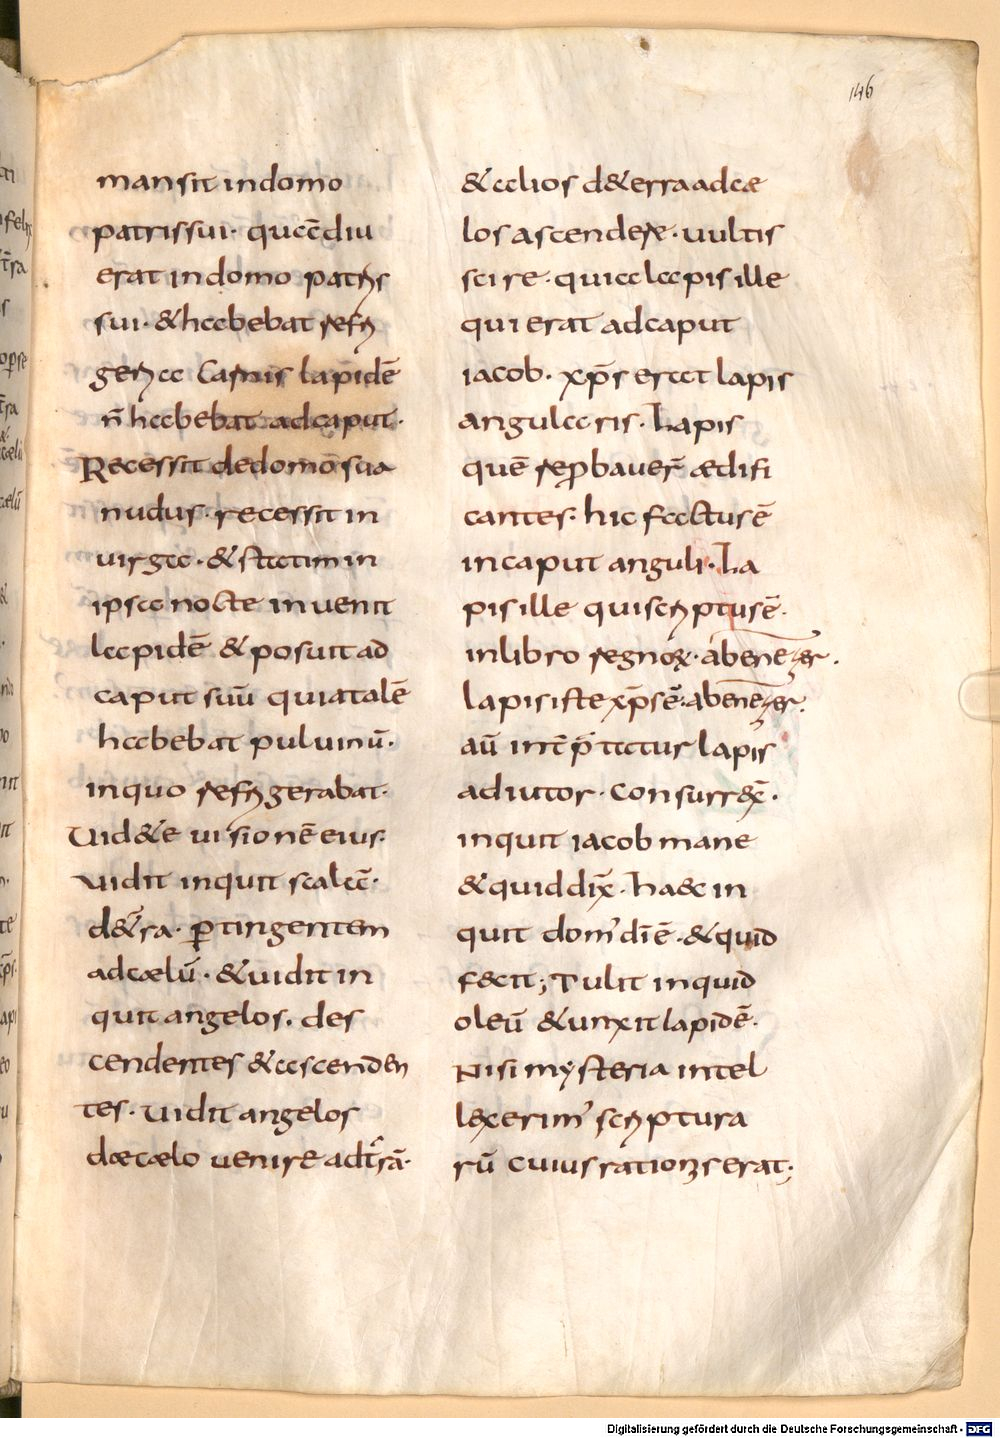 146
mansit indomo
patrissui· quādiu
erat indomo patris
sui· &habebat refri
geria Carnis lapidē
n̄ habebat adcaput·
Recessit dedomo sua
nudus· recessit in
uirga· & statim in
ipsa nocte inuenit
lapidē & posuit ad
caput suū quiatalē
habebat puluinū·
inquo refrigerabat·
Uid&e uisionē eius·
uidit inquit scalā·
d&̄ra· ꝑtingentem
adcælū· &uidit in
quit angelos· des
cendentes &ascenden
tes· uidit angelos
dæcælo uenire adt̄rā·
&alios d&erraadcæ
los ascendere· uultis
scire· quiaalapis ille
qui erat adcaput
iacob· xp̄s erat lapis
angularis· Lapis
quē reꝓbauer̄ ædifi
cantes· hic factusē
incaput anguli· La
pis ille qui scriptusē·
inlibro regnoꝝ· abenezer·
lapis iste xp̄sē· abenezer·
aū int̄p̄tatur lapis
adiutor· Consurr&x̄·
inquit iacob mane
&quid dix̄· ha&c in
quit dom' dīe· &quid
fecit; Tulit inquid
oleū &unxit lapidē·
Nisi mysteria intel
lexerim' scriptura
rū cuius rationis erat;
Digitalisierung gefördert durch die Deutsche Forschungsgemeinschaft - DFG